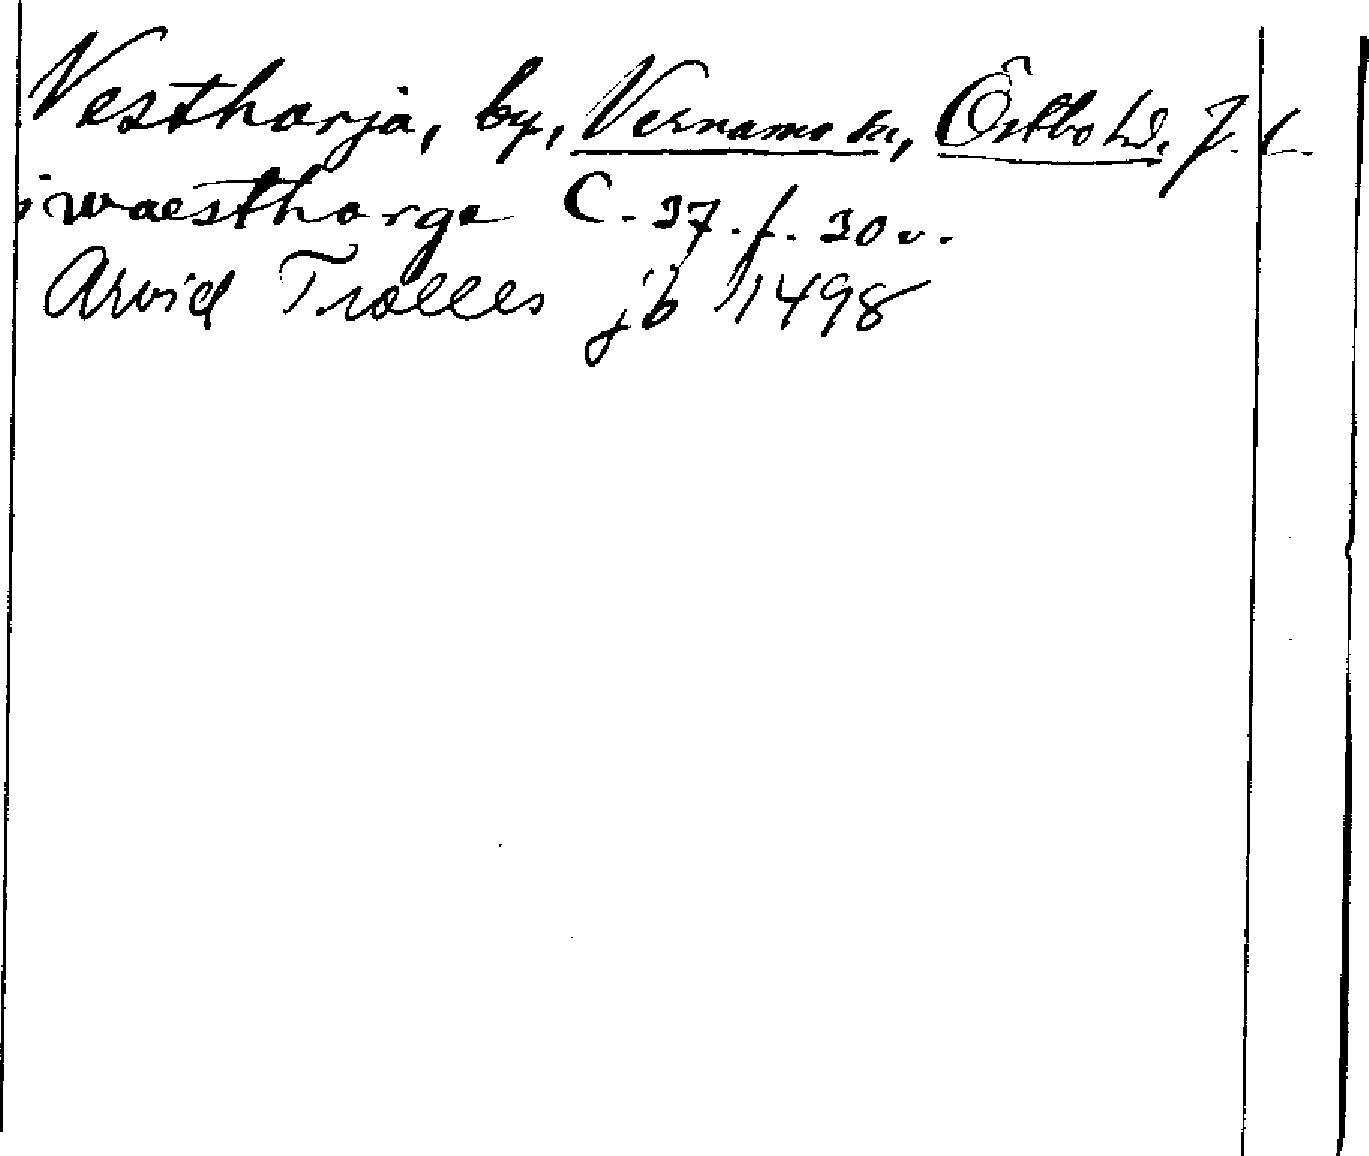 Vestharja, by, Vernamo sn, Östbo hd. J. l.
i waestharge C. 37. f. 30 v.
Arvid Trolles jb 1498